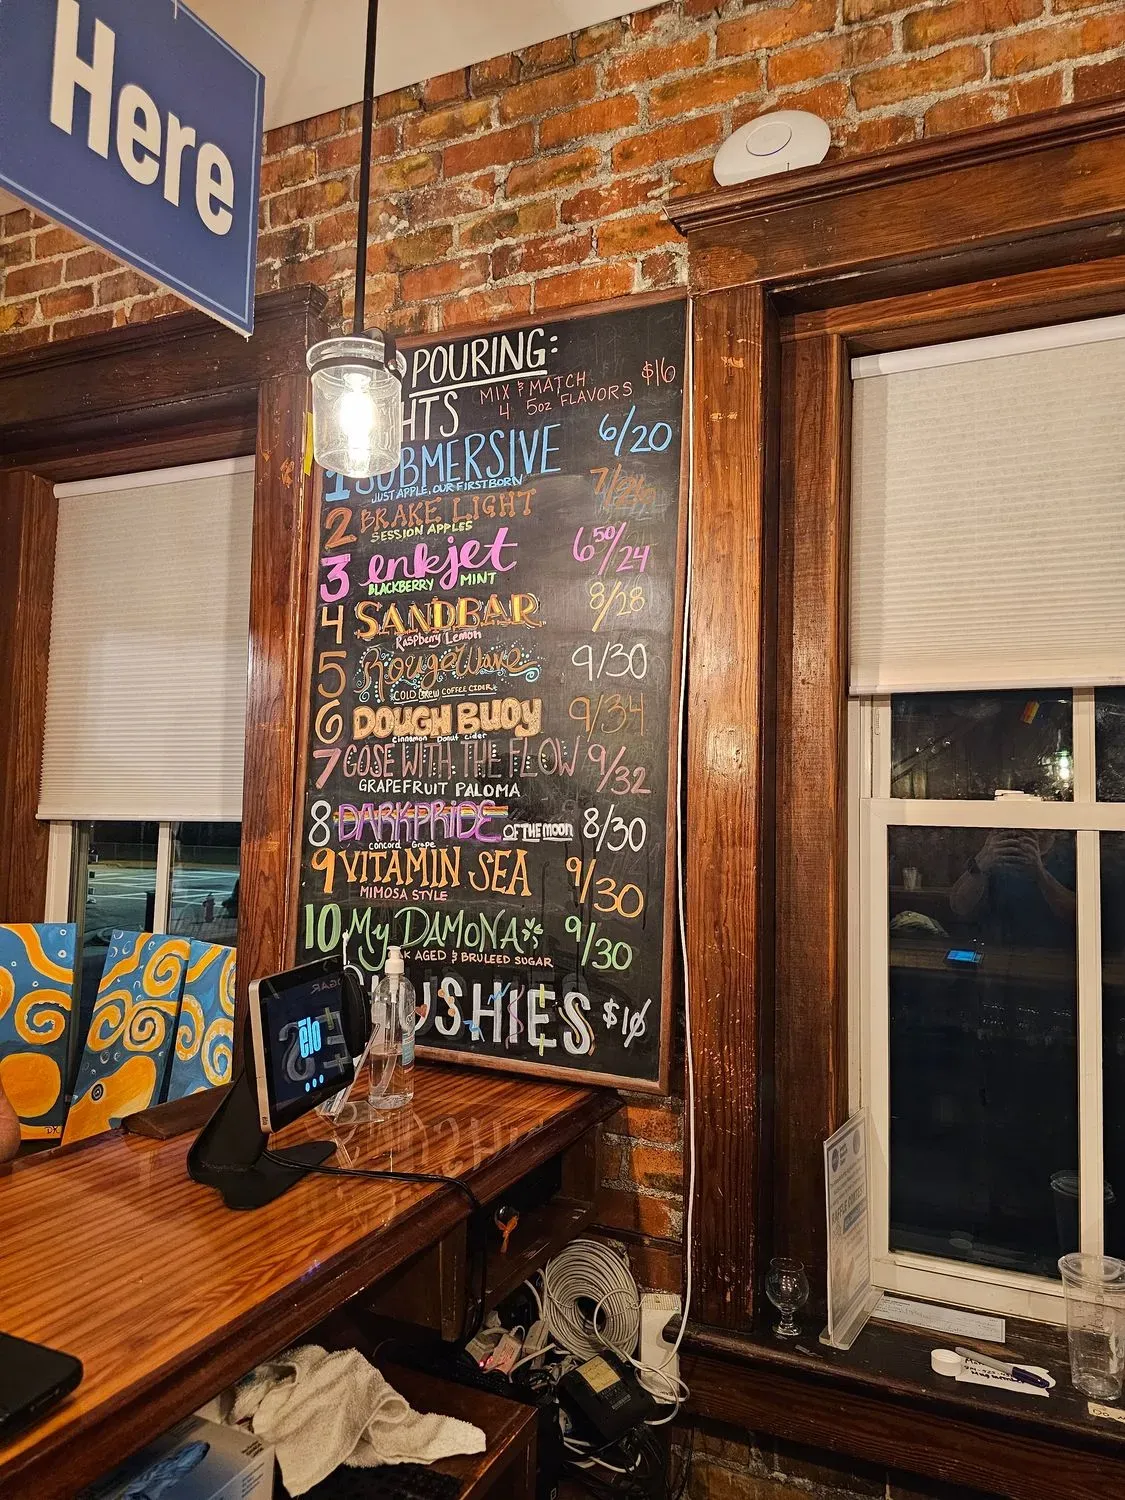 Here
POURING:
HTS MIX & MATCH $16
4 5oz FLAVORS
1 SUBMERSIVE 6/20
JUST APPLE, OUR FIRSTBORN
2 BRAKE LIGHT 7/26
SESSION APPLES
3 enkjet 6⁵⁰/24
BLACKBERRY MINT
4 SANDBAR 8/28
Raspberry Lemon
5 RougeWave 9/30
COLD BREW COFFEE CIDER
6 DOUGH BUOY 9/34
Cinnamon Donut Cider
7 GOSE WITH THE FLOW 9/32
GRAPEFRUIT PALOMA
8 DARKPRIDE OF THE MOON 8/30
Concord Grape
9 VITAMIN SEA 9/30
MIMOSA STYLE
10 My DAMONA 9/30
K AGED & BRULEED SUGAR
LUSHIES $10
elo